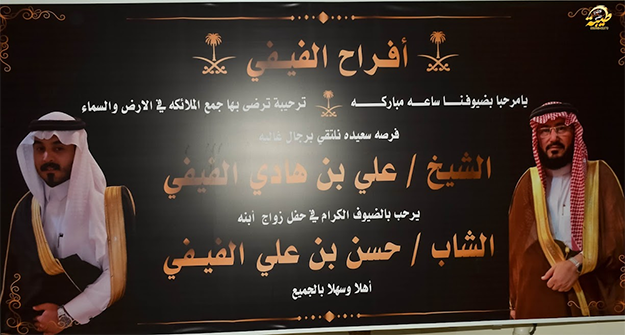 أفراح الفيفي
يامرحبا بضيوفنا ساعه مباركه ترحيبة ترضى بها جمع الملائكه في الارض والسماء
فرصه سعيده نلتقي برجال غاليه
الشيخ / علي بن هادي الفيفي
يرحب بالضيوف الكرام في حفل زواج أبنه
الشاب / حسن بن علي الفيفي
أهلا وسهلا بالجميع